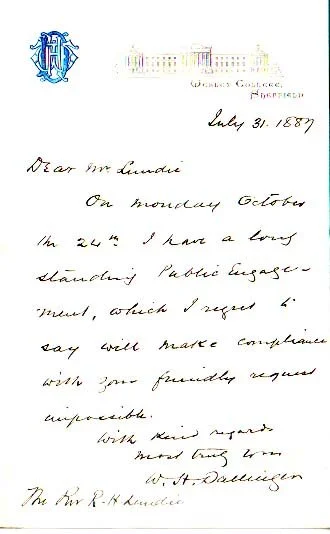 Wesley College,
Sheffield
July 31. 1887
Dear Mr Lundie
On Monday October
the 24th I have a long
standing Public Engage-
ment, which I regret to
say will make compliance
with your friendly request
impossible.
With kind regards
most truly yours
W. H. Dallinger
The Rev R. H Lundie